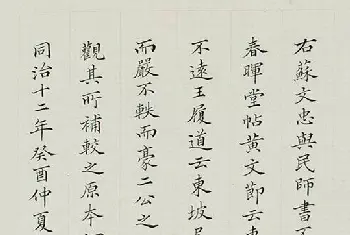 右蘇文忠與民師書不
春暉堂帖黃文節云東
不遠王履道云東坡
而嚴不軼而豪二公之
觀其所補較之原本
同治十二年癸酉仲夏